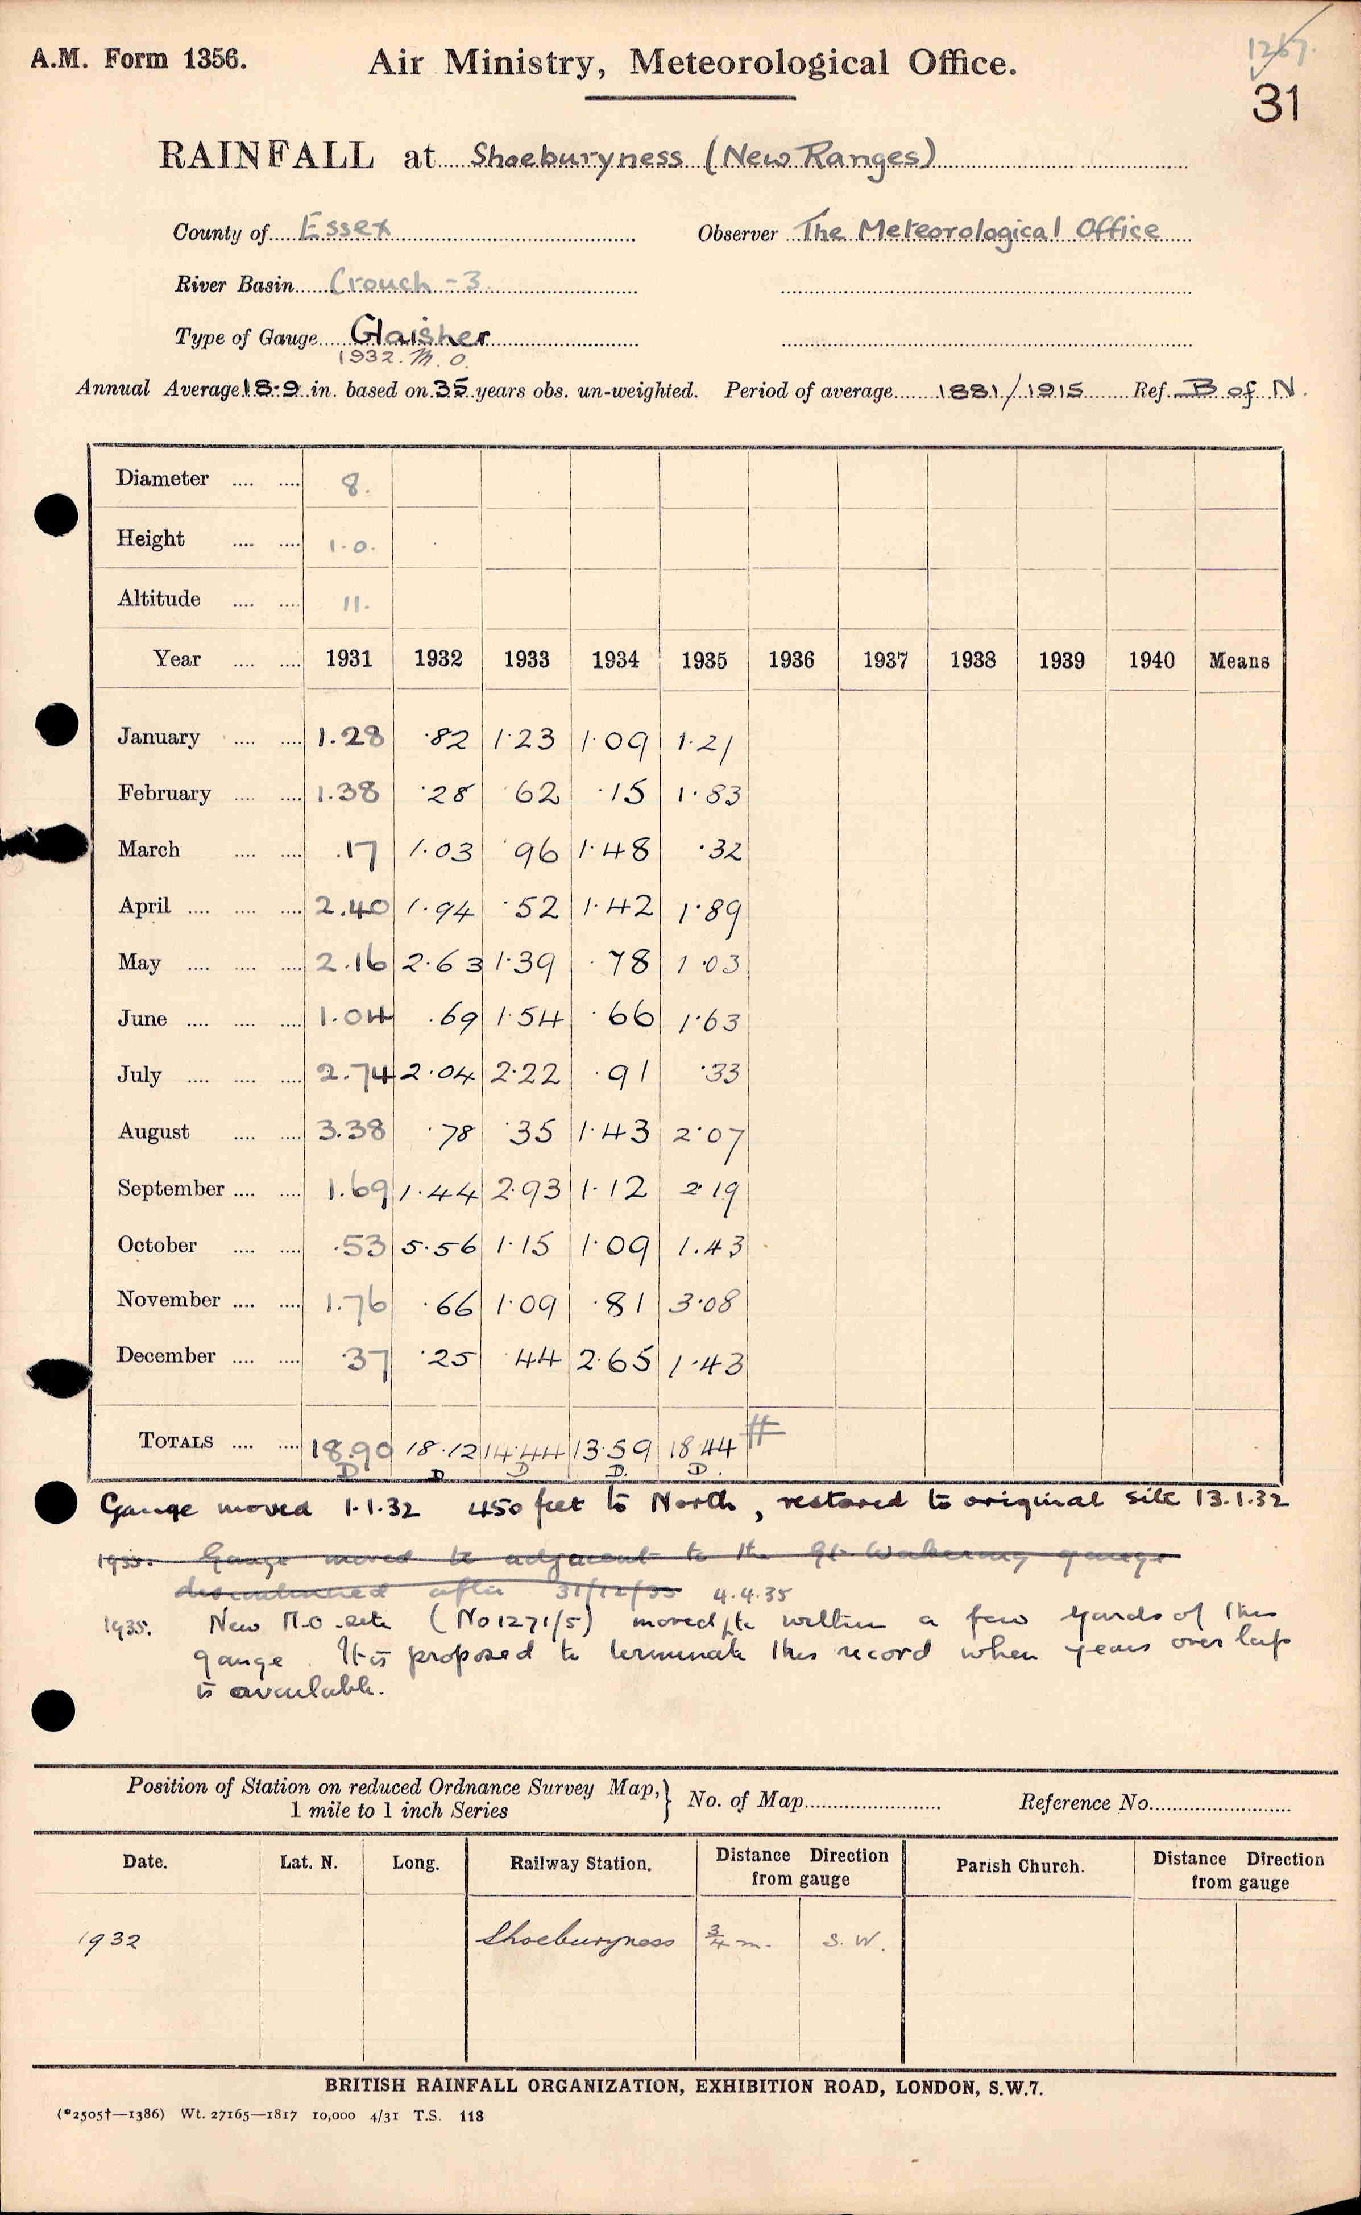 1267.
A.M. Form 1356. Air Ministry, Meteorological Office.
31
RAINFALL at Shoeburyness (New Ranges)
County of Essex Observer The Meteorological Office
River Basin Crouch - 3.
Type of Gauge Glaisher
1932. M.O.
Annual Average 18.9 in. based on 35 years obs. un-weighted. Period of average 1881/1915 Ref. B of N.
Diameter .... .... 8.
Height .... .... 1.0.
Altitude .... .... 11.
Year .... .... 1931 1932 1933 1934 1935 1936 1937 1938 1939 1940 Means
January .... .... 1.28 .82 1.23 1.09 1.21
February .... .... 1.38 .28 .62 .15 1.83
March .... .... .17 1.03 .96 1.48 .32
April .... .... .... 2.40 1.94 .52 1.42 1.89
May .... .... .... 2.16 2.63 1.39 .78 1.03
June .... .... .... 1.04 .69 1.54 .66 1.63
July .... .... .... 2.74 2.04 2.22 .91 .33
August .... .... 3.38 .78 .35 1.43 2.07
September .... .... 1.69 1.44 2.93 1.12 2.19
October .... .... .53 5.56 1.15 1.09 1.43
November .... .... 1.76 .66 1.09 .81 3.08
December .... .... .37 .25 .44 2.65 1.43
TOTALS .... .... 18.90 18.12 14.44 13.59 18.44 #
D D D D. D.
Gauge moved 1.1.32 450 feet to North, restored to original site 13.1.32
1935. Gauge moved to adjacent to the Gt. Wakering gauge
discontinued after 31/12/35 4.4.35
1935. New M.O. site (No 1271/5) moved to within a few yards of this
gauge. It is proposed to terminate this record when years over lap
is available.
Position of Station on reduced Ordnance Survey Map, } No. of Map Reference No.
1 mile to 1 inch Series
Date. Lat. N. Long. Railway Station. Distance Direction from gauge Parish Church. Distance Direction from gauge
1932 Shoeburyness ¾ m. S.W.
BRITISH RAINFALL ORGANIZATION, EXHIBITION ROAD, LONDON, S.W.7.
(*2505†—1386) Wt. 27165—1817 10,000 4/31 T.S. 118